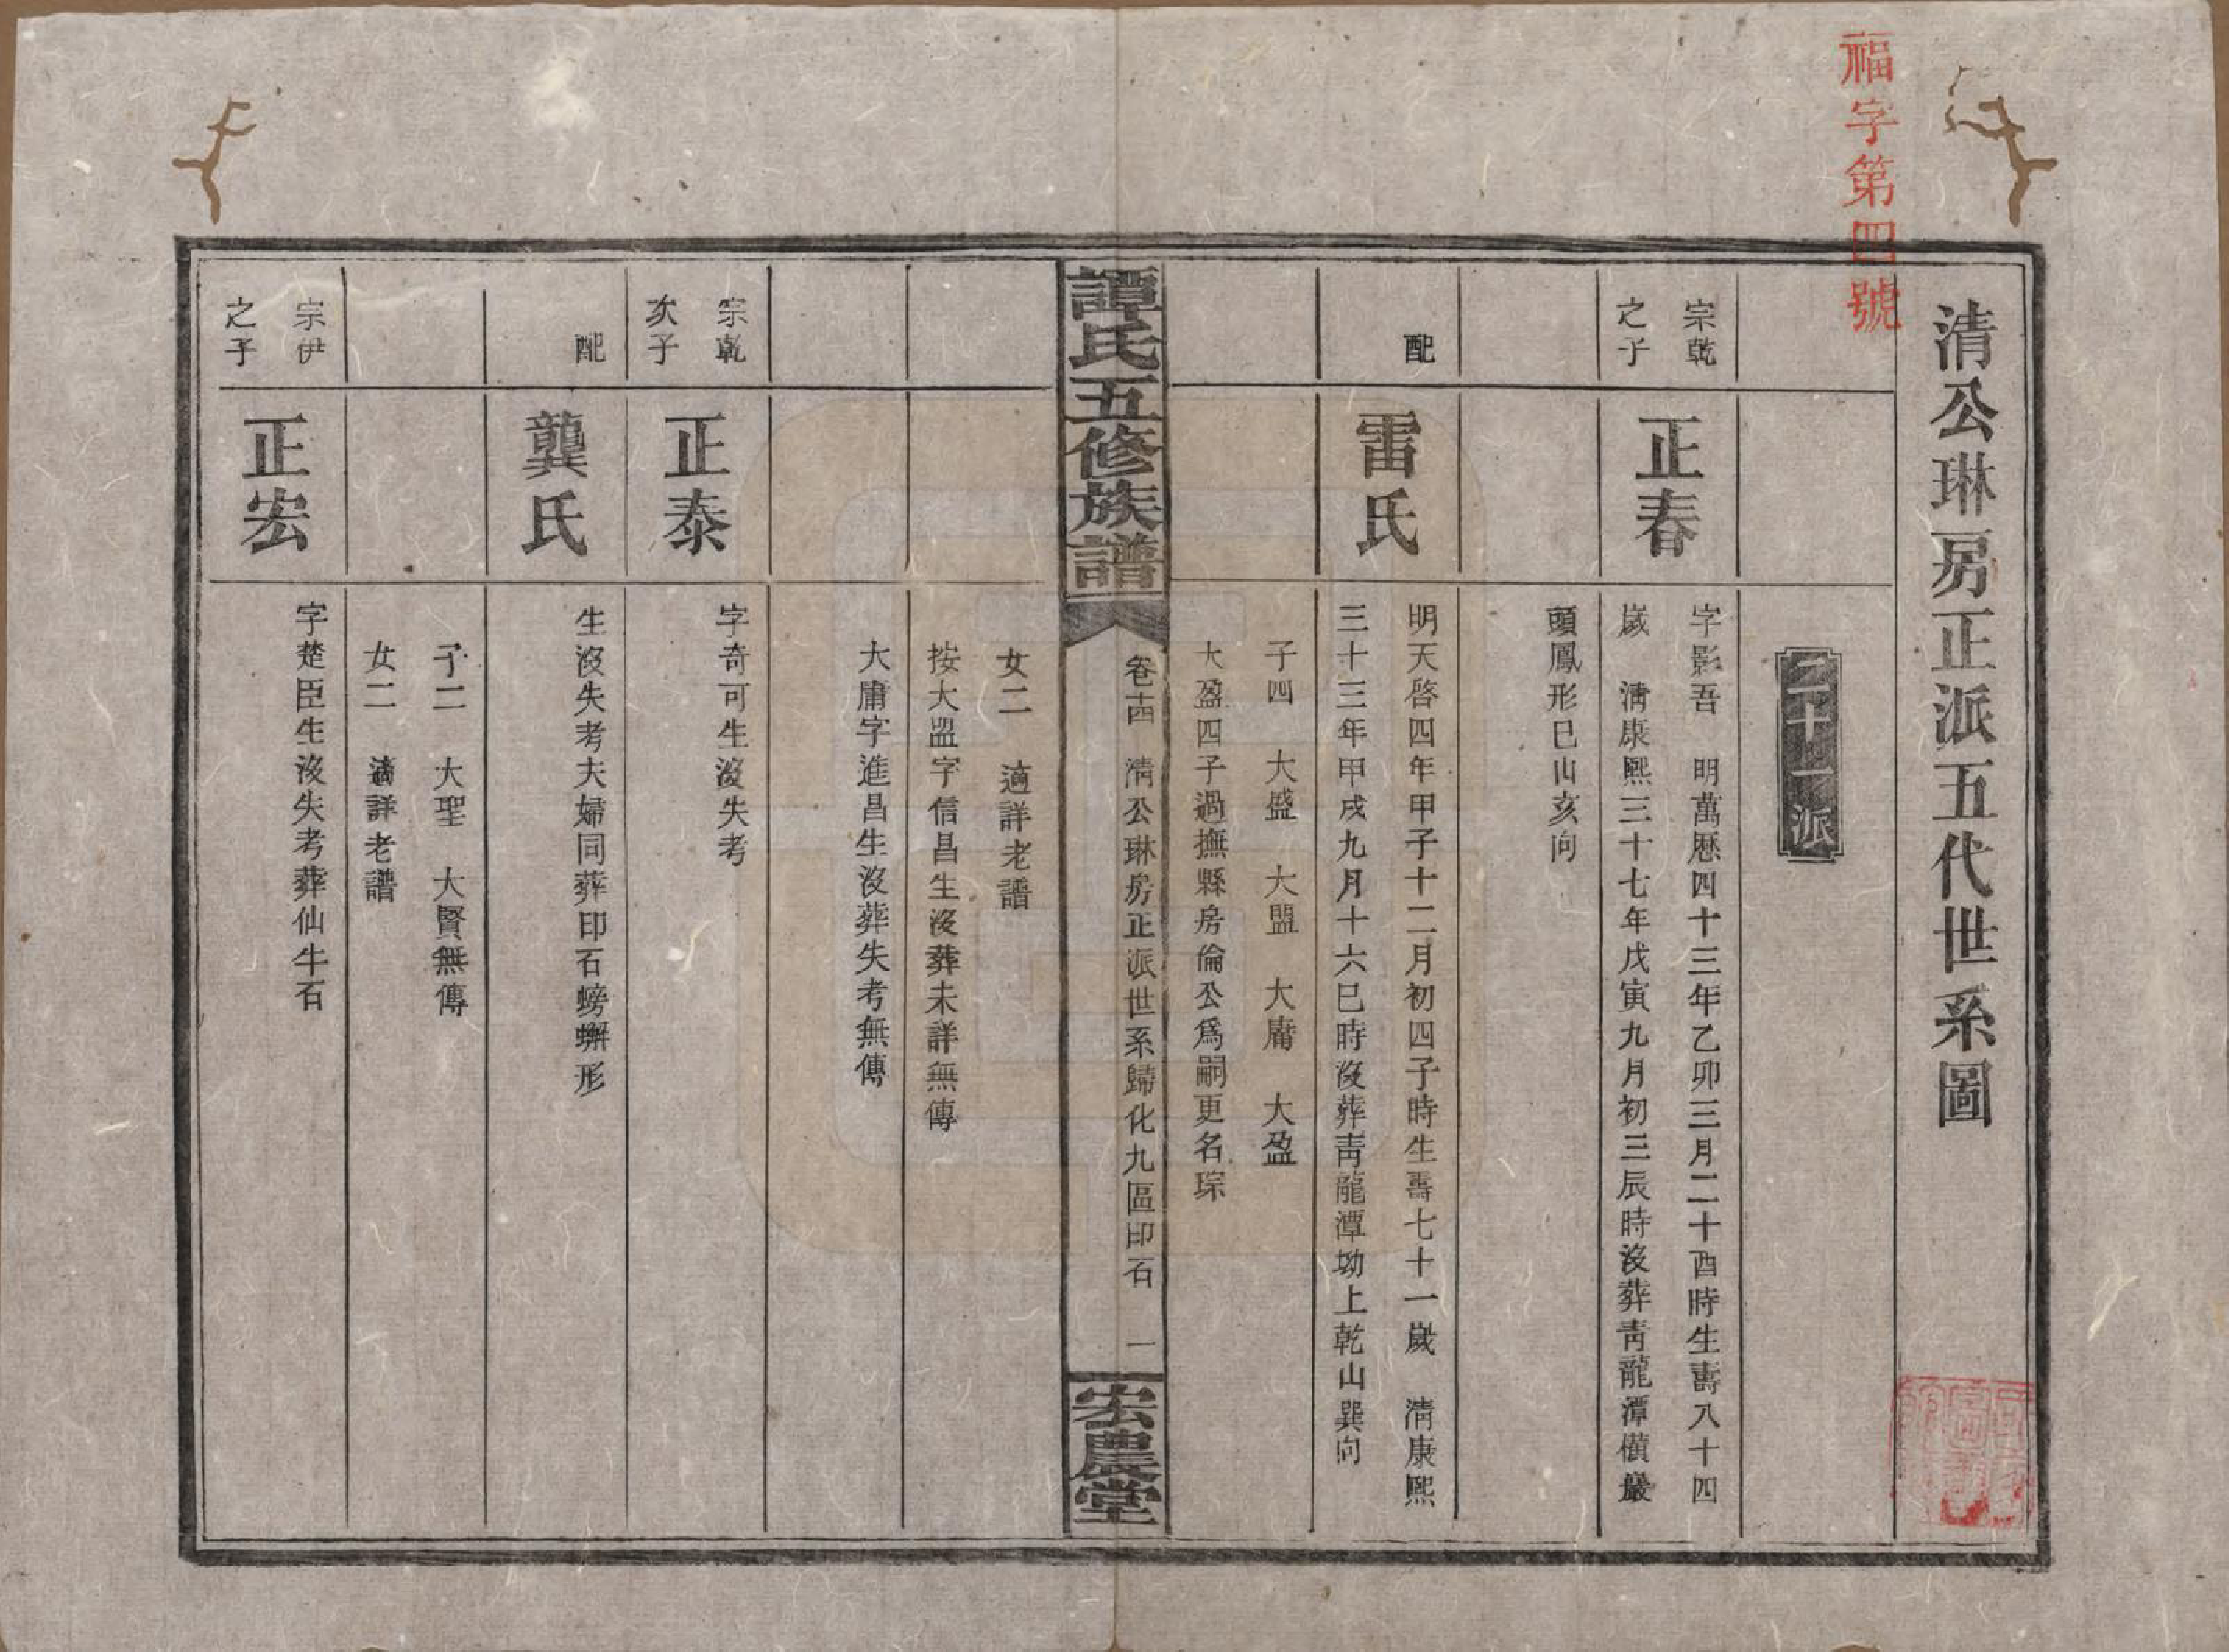 福字第四號
清公琳房正派五代世系圖
二十一派
宗乾
之子
正春
字影吾　明萬歷四十三年乙卯三月二十酉時生壽八十四
歲　清康熙三十七年戊寅九月初三辰時沒葬青龍潭橫巖
頭鳳形巳山亥向
配
雷氏
明天啓四年甲子十二月初四子時生壽七十一歲　清康熙
三十三年甲戌九月十六巳時沒葬青龍潭坳上乾山巽向
子四　大盛　大盟　大庸　大盈
大盈四子過撫縣房倫公爲嗣更名琮
譚氏五修族譜
卷十四　清公琳房正派世系歸化九區印石　一
宏農堂
女二　適詳老譜
按大盟字信昌生沒葬未詳無傳
大庸字進昌生沒葬失考無傳
宗乾
次子
正泰
字奇可生沒失考
配
龔氏
生沒失考夫婦同葬印石螃蠏形
子二　大聖　大賢無傳
女二　適詳老譜
宗伊
之子
正宏
字楚臣生沒失考葬仙牛石